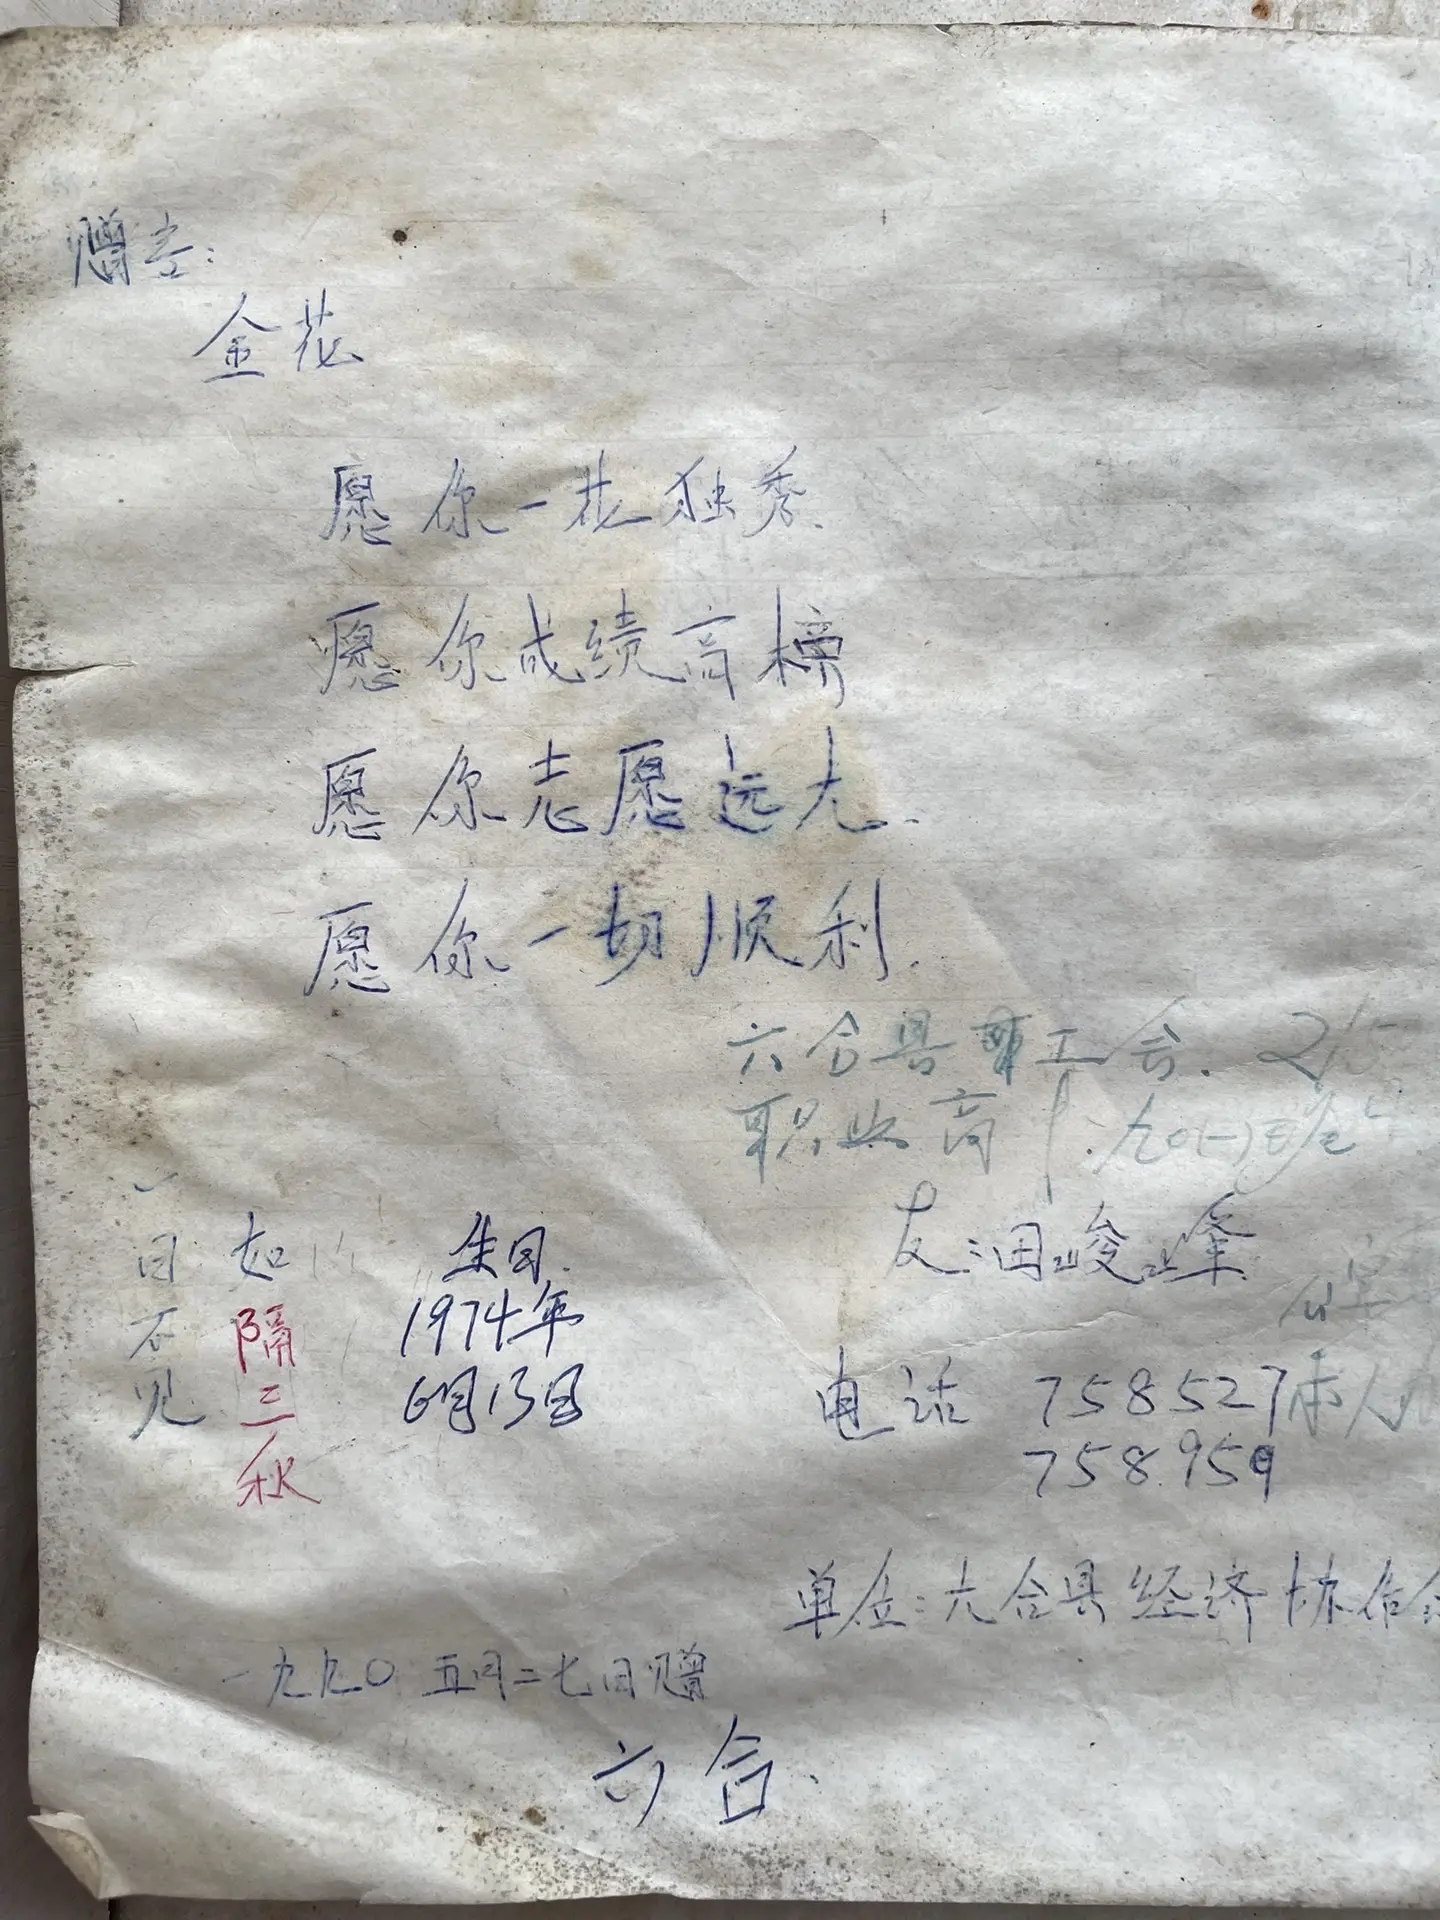 赠言:
金花
愿你一花独秀.
愿你成绩高榜
愿你志愿远大.
愿你一切顺利.
六合县职工会.
职业高
友:田峻峰
一日不见
如隔三秋
生日.
1974年
6月13日
电话 758527
758959
单位:六合县经济协作
一九九〇 五月二七日赠
六合.